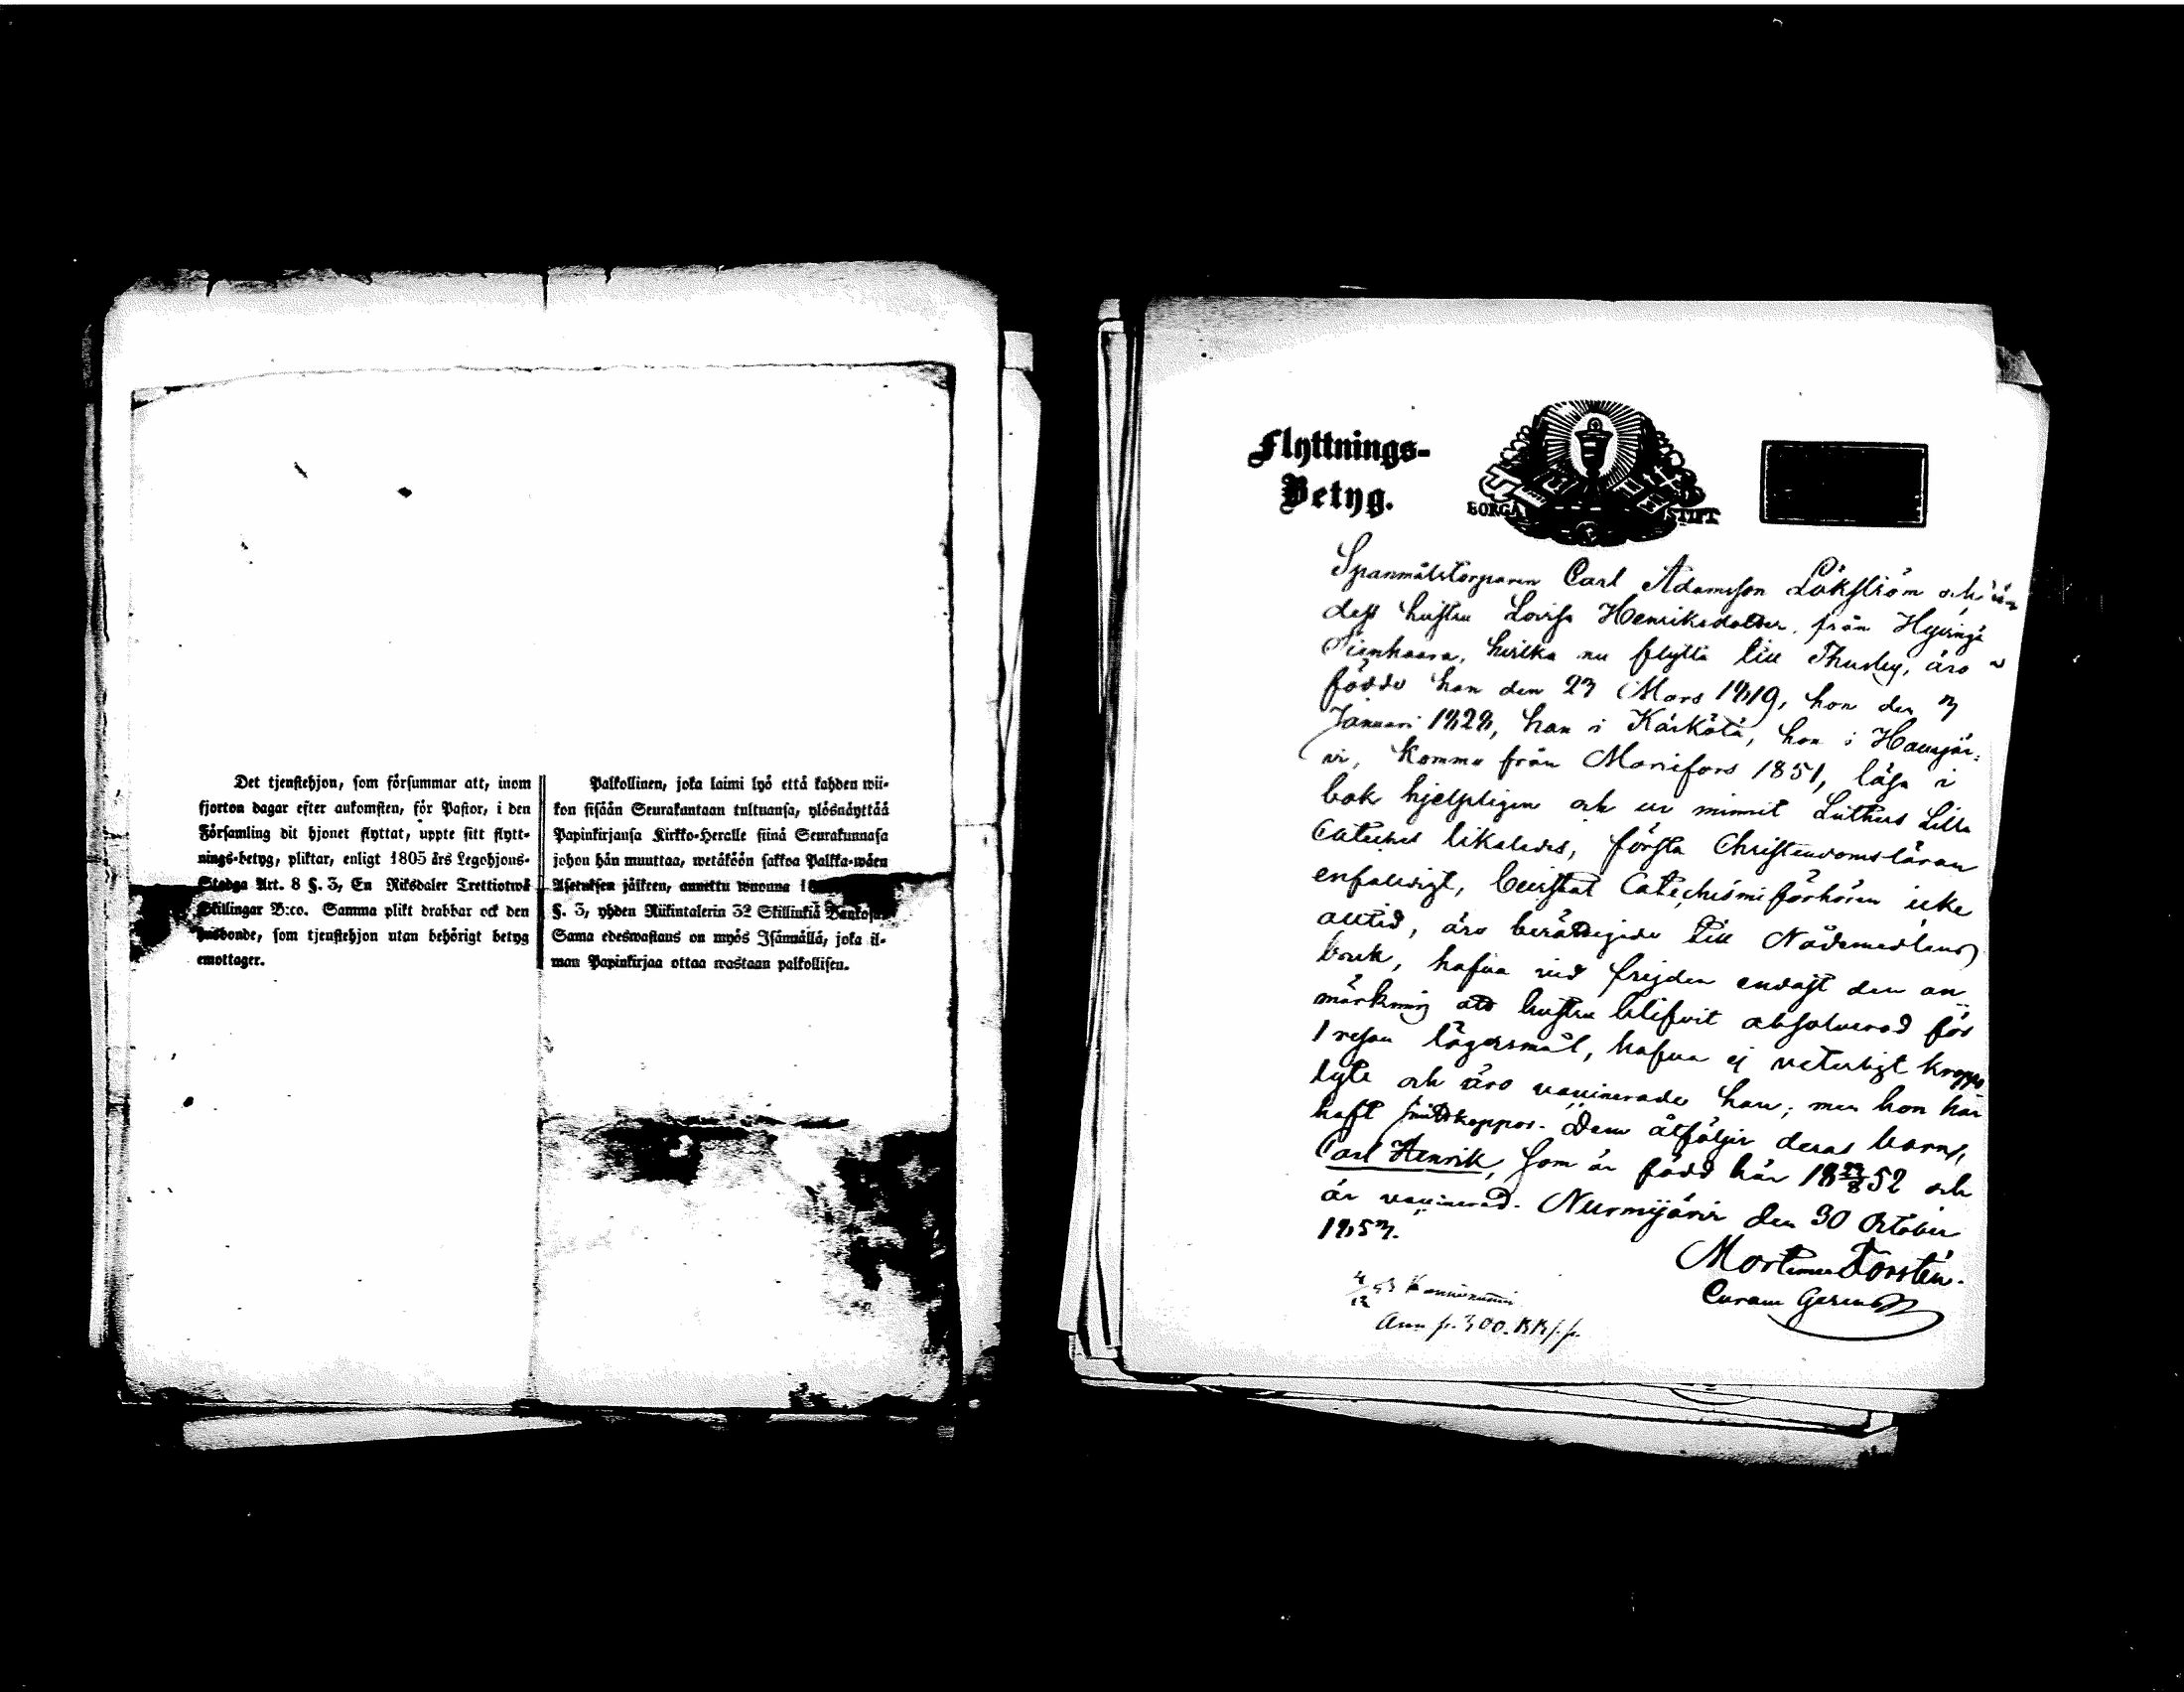 Det tjenstehjon, som försummar att, inom
fjorton dagar efter ankomsten, för Pastor, i den
Församling dit hjonet flyttat, uppte sitt flytt-
nings-betyg, pliktar, enligt 1805 års Legohjons-
Stadga Art. 8 §. 3, En Riksdaler Trettiotwå
Skillingar B:co. Samma plikt drabbar ock den
husbonde, som tjenstehjon utan behörigt betyg
emottager.
Palkollinen, joka laimi lyö että kahden wii-
kon sisään Seurakuntaan tultuansa, ylösnäyttää
Papinkirjansa Kirkko-Heralle siinä Seurakunnasa
johon hän muuttaa, wetäköön sakkoa Palkka-wäen
Asetuksen jälkeen, annettu wuonna 18
§. 3, yhden Riikintalerin 32 Skillinkiä Bankosa
Sama edeswastaus on myös Isännällä, joka il-
man Papinkirjaa ottaa wastaan palkollisen.
Flyttnings-
Betyg.
BORGÅ STIFT
Spanmålstorparen Carl Adamsson Lökström och
dess hustru Lovisa Henriksdotter från Hyvinge
hvilka nu flytta till Thusby, äro
födde han den 23 Mars 1819, hon den 3
Januari 1828, han i Kärkölä, hon i Hausjär-
vi, komma från Mariefors 1851, läsa i
bok hjelpligen och ur minnet Luthers Lilla
Cateches likaledes, förstå Christendomsläran
enfaldigt, bevistat Catechismiförhören icke
alltid, äro berättigade till Nådemedlens
bruk, hafva vid frejden endast den an-
märkning att hustru blifvit absolverad för
1 resan lägersmål, hafva ej veterligt kropps
lyte och äro vaccinerade han, men hon har
haft smittkoppor. Dem åtföljer deras barn,
Carl Henrik, som är född här 18 23/8 52 och
är vaccinerad. Nurmijärvi den 30 October
1853.
Mortimer Forstén.
Curam Gerens
4/12 53
Ann p. 300. KK